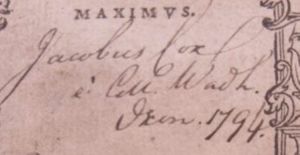 MAXIMVS.
Jacobus Cox
è Coll. Wadh.
Oxon. 1794